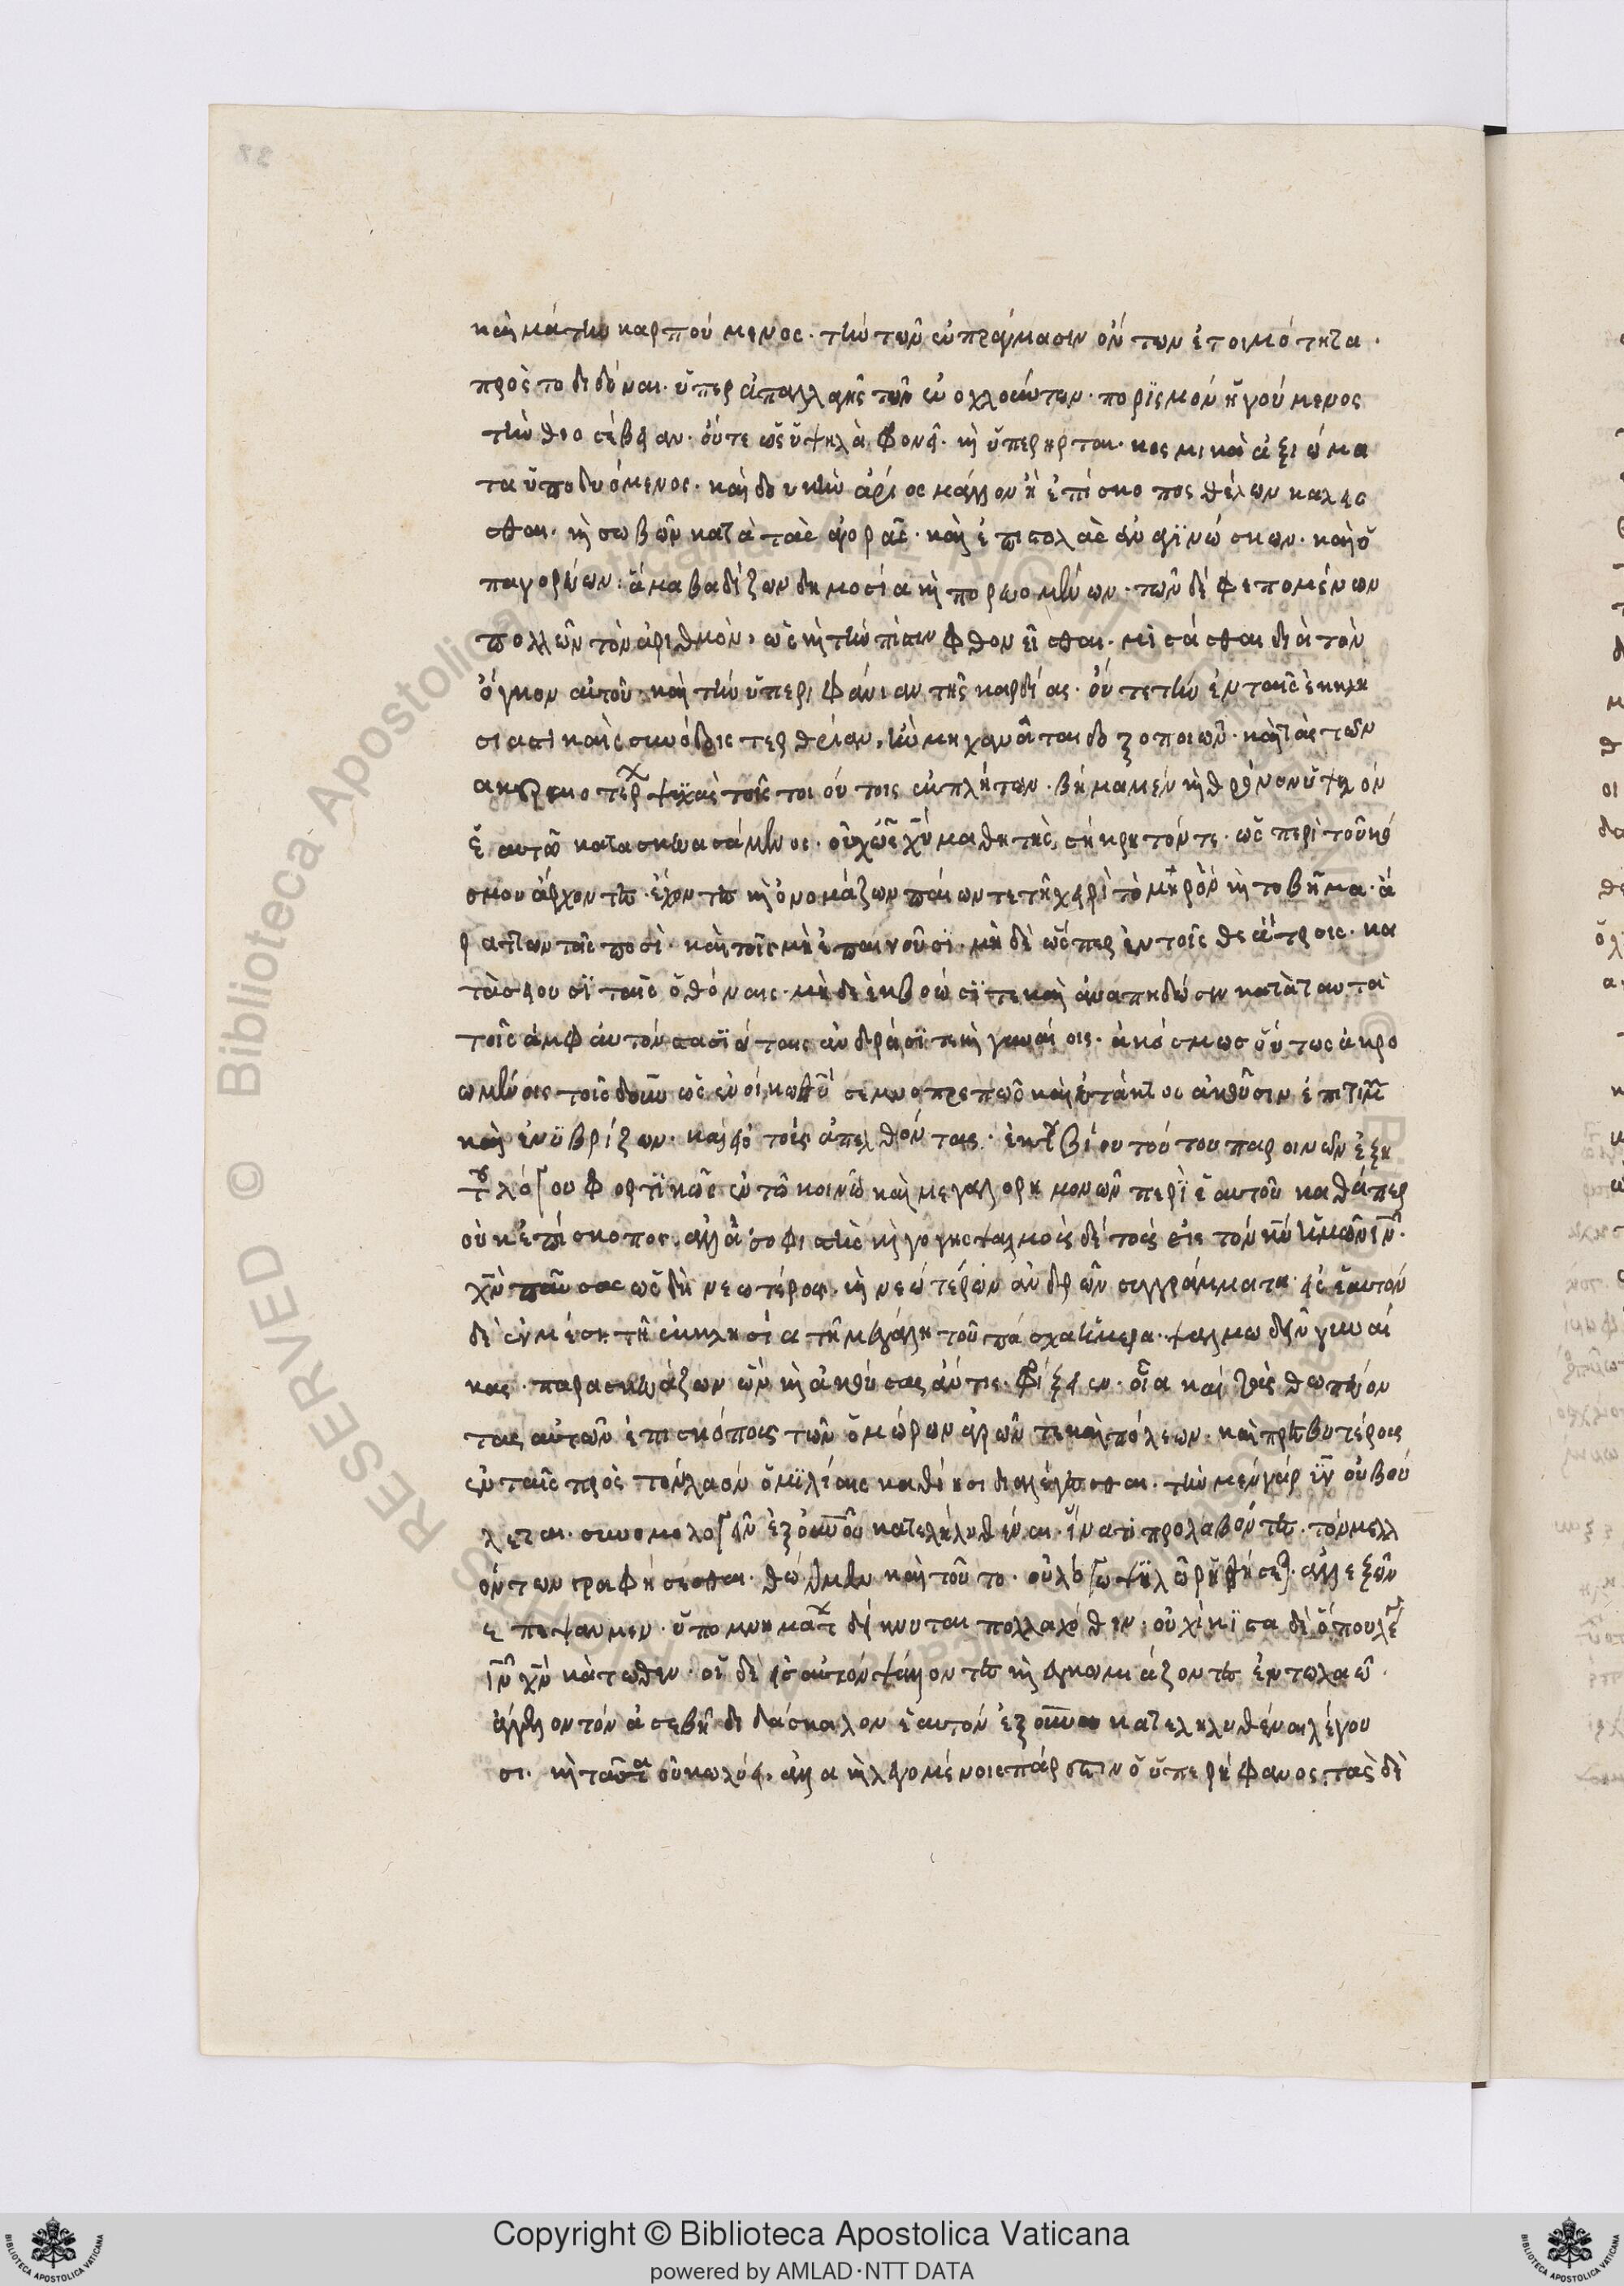 καὶ μάτην καρπούμενος· τὴν τῶν ἐν πράγμασιν ὄντων ἑτοιμότητα·
πρὸς το διδόναι· ὑπερ ἀπαλλαγῆς τῶν ἐνοχλούντων· πορϊσμὸν ἡγούμενος
τὴν θεοσέβειαν· οὔτε ὡς ὑψηλὰ φρονεῖ· καὶ ὑπερῆρται· κοσμικὰ ἀξιώμα
τα ὑποδυόμενος· καὶ δουκηνάριος μάλλον ἢ ἐπίσκοπος θέλων καλεῖς
σθαι· καὶ σωβῶν κατὰ τὰς ἀγορᾶς· καὶ ἐπιστολὰς ἀναγϊνώσκων· καὶ ὑ
παγορεύων· ἅμα βαδίζων δημοσία καὶ πορευομένων· τῶν δέ φεπομένων
πολλῶν τὸν ἀριθμὸν, ὡς καὶ τὴν πίστιν φθονεῖσθαι· μισάσθαι διὰ τὸν
ὄγκον αὐτοῦ· καὶ τὴν ὑπεριφάνιαν τῆς καρδίας· οὔτε τὴν ἐν ταῖς ἐκκλη
σιαστικαῖς συνόδοις τερθείαν, ἣν μηχανᾶται δοξοποιῶν· καὶ τὰς τῶν
ἀκεραιοτέρων ψυχὰς τοῖς τοιούτοις ἐκπλήττων· βῆμα μὲν καὶ θρόνον ὑψηλόν
ἑαυτῶ κατασκευασάμενος· οὐχ ὡς χυ μαθητὴς, σήκρητόν τε· ὡς περὶ τοῦ κό
σμου ἄρχοντες· ἔχοντες καὶ ὀνομάζων παίων τε τῆ χειρὶ τὸ μηρὸν καὶ το βῆμα· ἀ
ράττων ταῖς ποσὶ· καὶ τοῖς μὴ ἐπαινοῦσϊ· μὴ δὲ ὥσπερ ἐν τοῖς θεάτροις· κα
τάσηουσϊ ταῖς ὀθόναις· μὴ δὲ ἐκβοώσϊ τε καὶ ἀναπηδώσιν κατὰ ταυτὰ
τοῖς ἀμφ αυτόν στασϊώταις ἀνδράσϊ τε καὶ γυναίοις· ἀκόσμως οὕτως ἀκρο
ωμένοις τοῖς δουν ὡς ἐν οίκω θυ σεμνοπρεπῶς καὶ εὐτάκτως ἀκούουσιν ἐπιτιμῶν
καὶ ἐνϋβρίζων· καὶ εἰς τοὺς ἀπελθόντας· ἐκ τοῦ βίου τούτου παροινῶν ἐξη
τοῦ λόγου φορτϊκῶς ἐν τῶ κοινῶ καὶ μεγαλορημονῶν περὶ ἑαυτοῦ καθάπερ
οὐκ ἐπίσκοπος, ἀλλὰ σοφιστὴς καὶ γόης ψαλμοὺς δέ τοὺς εἰς τὸν κν ἡμῶν ιν·
χν παύσας ὡς δὴ νεωτέρους· καὶ νεώτέρων ἀνδρῶν συγγράμματα· εἰς ἑαυτόν
δὲ ἐν μέση τῆ ἐκκλησία τῆ μεγάλη τοῦ πάσχα ἡμέρα· ψαλμωδεῖν γυναί
κας· παρασκευάζων ὧν καὶ ἀκούσας ἄν τις· φρίξειεν· οἷα καὶ τοὺς θωπεύον
τας αὐτῶν ἐπισκόπους τῶν ὁμώρων ἀγρῶν τε καὶ πόλεων· καὶ πρεσβυτέρους
ἐν ταῖς πρὸς τὸν λαόν ὁμϊλίαις καθήκοι διαλέγεσθαι· τὴν μὲν γὰρ ϊν οὐ βού
λεται· συνομολογεῖν ἐξ ουνοῦ κατεληλυθέναι· ἵνα τι προλαβόντες· τόν μελλ
όντων γραφήσεσθαι· θώμεν καὶ τοῦτο· οὐ λόγω ψϊλῶ ῥηθήσεται· ἀλλ εξ ὧν
ε πεψαμεν· ὑπομνημάτων δείκνυται πολλαχόθεν· οὐχ ἥκϊστα δὲ ὅπου λέγει
ιν χν κάτωθεν· οἱ δέ εἰς αὐτόν ψάλλοντες καὶ ἐγκωμιάζοντες ἐν τω λαῶ·
ἄγγελον τόν ἀσεβῆ διδάσκαλον ἑαυτόν ἐξ ουνου κατεληλυθέναι λέγου
σι· καὶ ταῦτα οὐ κωλύει, ἀλλα καὶ λεγομένοις πάρεστιν ὁ ὑπερήφανος· τὰς δὲ
Copyright © Biblioteca Apostolica Vaticana
powered by AMLAD·NTT DATA